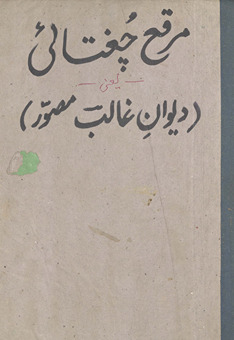 مرقع چغتائی
یعنی
(دیوانِ غالب مصوّر)